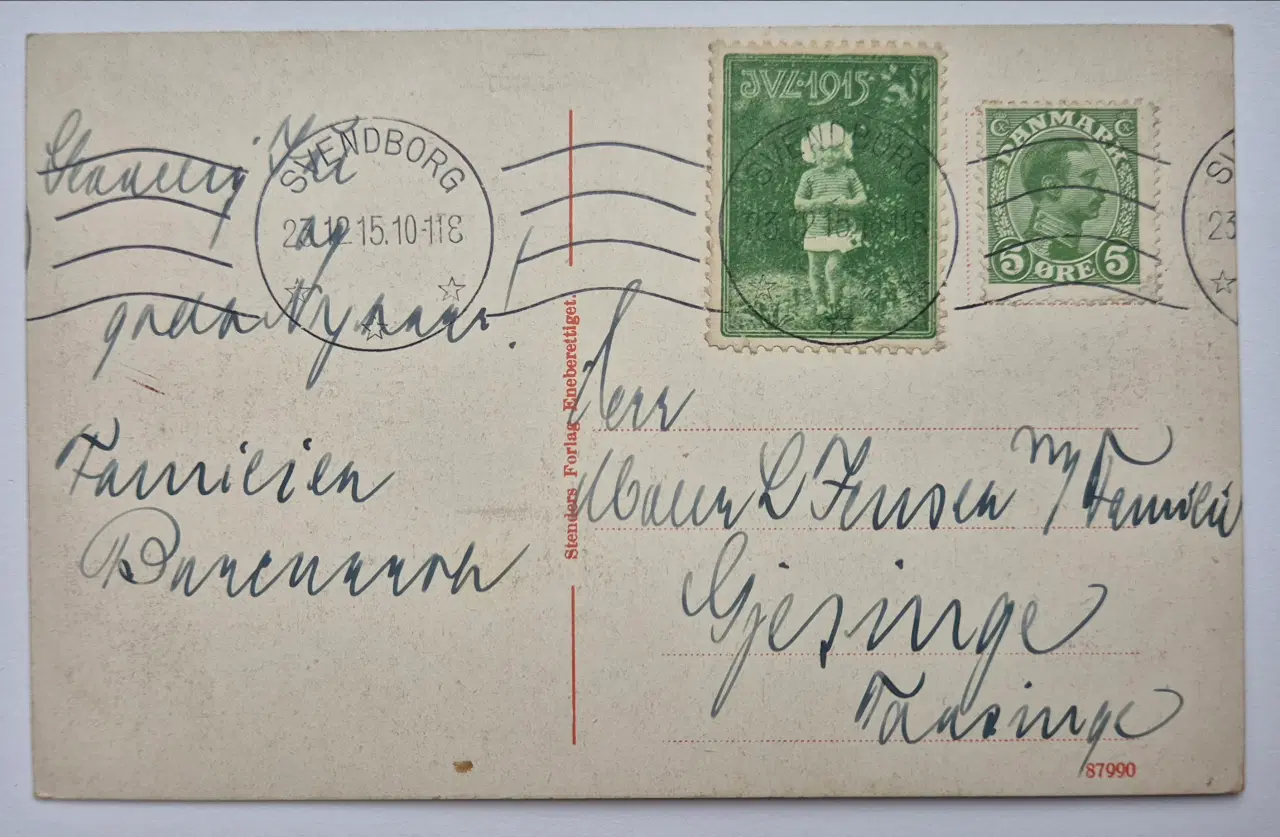 Glædelig Jul
og
godt Nytaar!
Familien
SVENDBORG
23.12.15.10-11E
Stenders Forlag Eneberettiget.
JUL·1915
SVENDBORG
23.12.15.10-11E
DANMARK
5 ØRE 5
SV
23
Herr
L Jensen m/ Familie
Gjesinge
Taasinge
87990